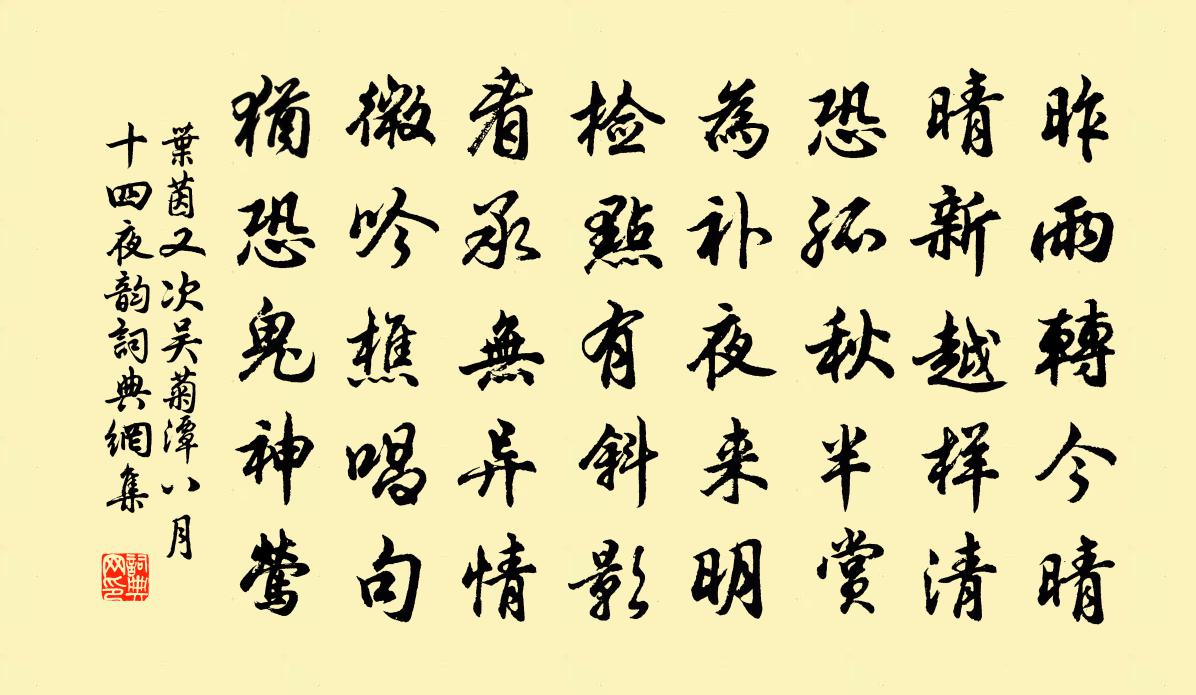 昨雨轉今晴
晴新越样清
恐孤秋半賞
為补夜来明
检點有斜影
看承無异情
微吟樵唱句
猶恐鬼神驚
葉茵又次吴菊潭八月
十四夜韵詞典網集
詞典
网印